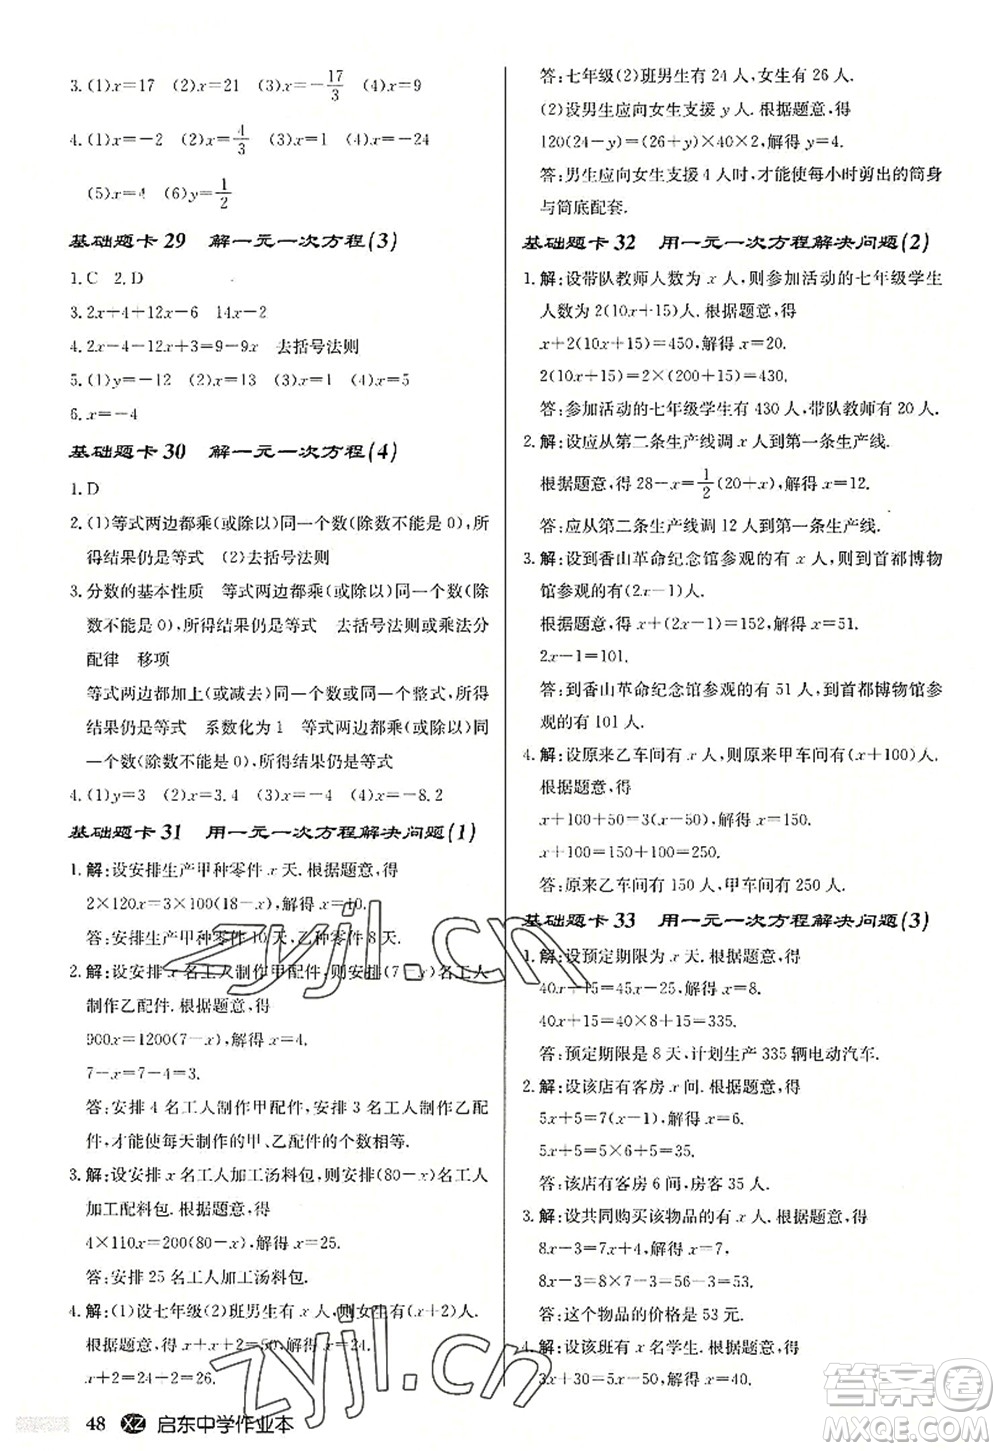 3. (1)x=17　(2)x=21　(3)x=-17/3
4. (1)x=-2　(2)x=4/3　(3)x=4　(4)x=-24
(5)x=4　(6)y=1/2
基础题卡 29　解一元一次方程(3)
1. C　2. D
3. 2x+4+12x-6　14x-2
4. 2x-4-12x+3=9-9x　去括号法则
5. (1)y=-12　(2)x=3　(3)x=6　(4)x=5
6. x=-4
基础题卡 30　解一元一次方程(4)
1. D
2. (1)等式两边都乘(或除以)同一个数(除数不能是 0),所
得结果仍是等式　(2)去括号法则
3. 分数的基本性质　等式两边都乘(或除以)同一个数(除
数不能是 0),所得结果仍是等式　去括号法则或乘法分
配律　移项
等式两边都加上(或减去)同一个数或同一个整式,所得
结果仍是等式　系数化为 1　等式两边都乘(或除以)同
一个数(除数不能是 0),所得结果仍是等式
4. (1)y=3　(2)x=3.4　(3)x=4　(4)x=-8.2
基础题卡 31　用一元一次方程解决问题(1)
1. 解:设安排生产甲种零件 x 天. 根据题意,得
2×120x=3×100(18-x),解得 x=10.
答:安排生产甲种零件 10 天,乙种零件 8 天.
2. 解:设安排 x 名工人制作甲配件,则安排(7-x)名工人
制作乙配件. 根据题意,得
900x=1200(7-x),解得 x=4.
7-x=7-4=3.
答:安排 4 名工人制作甲配件,安排 3 名工人制作乙配
件,才能使每天制作的甲、乙配件的个数相等.
3. 解:设安排 x 名工人加工汤料包,则安排(80-x)名工人
加工配料包. 根据题意,得
4×110x=(80-x)×200,解得 x=25.
答:安排 25 名工人加工汤料包.
4. 解:(1)设七年级(2)班男生有 x 人,则女生有(x+2)人.
根据题意,得 x+x+2=50,解得 x=24.
x+2=24+2=26.
答:七年级(2)班男生有 24 人,女生有 26 人.
(2)设男生应向女生支援 y 人. 根据题意,得
120(24-y)=(26+y)×40×2,解得 y=4.
答:男生应向女生支援 4 人时,才能使每小时剪出的筒身
与筒底配套.
基础题卡 32　用一元一次方程解决问题(2)
1. 解:设带队教师人数为 x 人,则参加活动的七年级学生
人数为 2(10x+15)人. 根据题意,得
x+2(10x+15)=450,解得 x=20.
2(10x+15)=2×(200+15)=430.
答:参加活动的七年级学生有 430 人,带队教师有 20 人.
2. 解:设应从第二条生产线调 x 人到第一条生产线.
根据题意,得 28-x=1/2(20+x),解得 x=12.
答:应从第二条生产线调 12 人到第一条生产线.
3. 解:设到香山革命纪念馆参观的有 x 人,则到首都博物
馆参观的有(2x-1)人. 根据题意,得
x+(2x-1)=152,解得 x=51.
2x-1=101.
答:到香山革命纪念馆参观的有 51 人,到首都博物馆参
观的有 101 人.
4. 解:设原来乙车间有 x 人,则原来甲车间有(x+100)人.
根据题意,得
x+100+50=3(x-50),解得 x=150.
x+100=150+100=250.
答:原来乙车间有 150 人,甲车间有 250 人.
基础题卡 33　用一元一次方程解决问题(3)
1. 解:设预定期限为 x 天. 根据题意,得
40x+15=45x-25,解得 x=8.
40x+15=40×8+15=335.
答:预定期限是 8 天,计划生产 335 辆电动汽车.
2. 解:设该店有客房 x 间. 根据题意,得
5x+5=7(x-1),解得 x=6.
5x+5=5×6+5=35.
答:该店有客房 6 间,房客 35 人.
3. 解:设共同购买该物品的有 x 人. 根据题意,得
8x-3=7x+4,解得 x=7.
8x-3=7×8-3=56-3=53.
答:这个物品的价格是 53 元.
4. 解:设该班有 x 名学生. 根据题意,得
48 XZ 启东中学作业本
zyjl.cn
zyjl.cn
答案圈
MXQE.COM